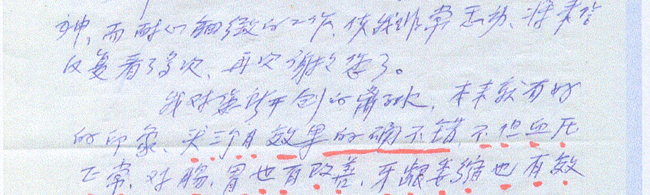 神,而耐心细致的工作,使我非常感动,将来信
反复看了多次、再次谢谢您了。
我对您所开创的 本来就有好
的印象、 三个月效果的确不错、不但血压
正常、对肠、胃也有改善,牙龈萎缩也有效